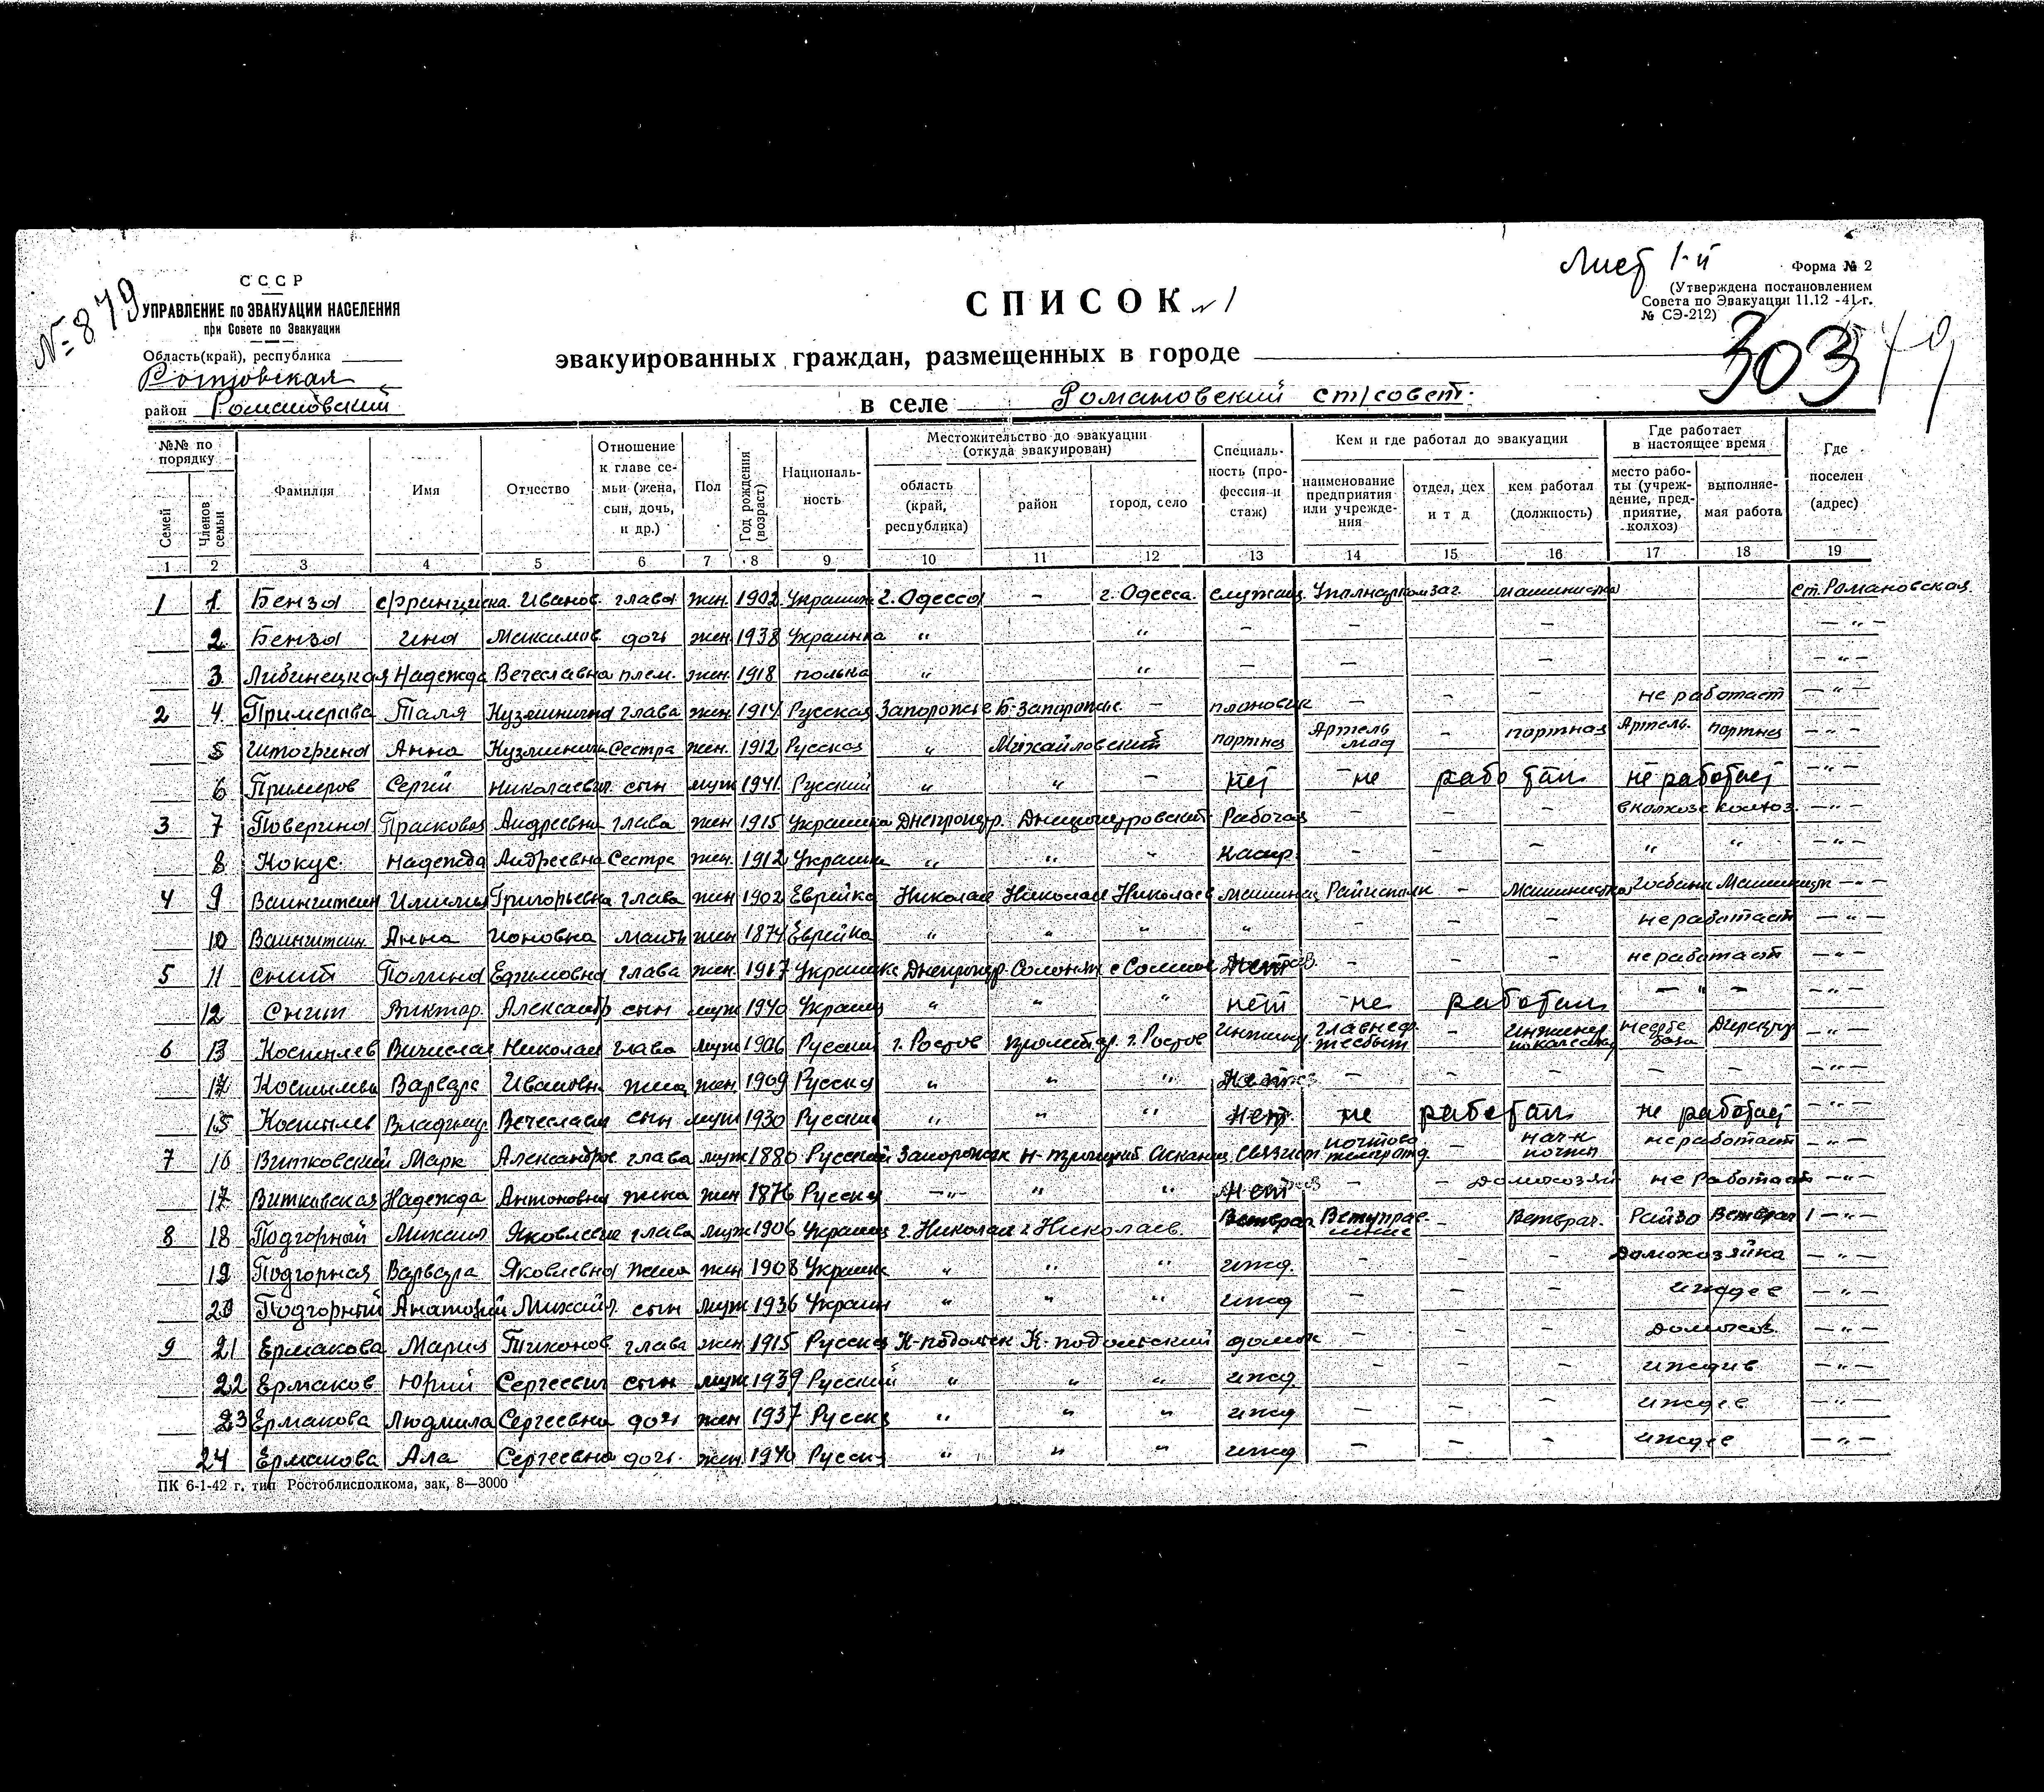 № 879
СССР
УПРАВЛЕНИЕ по ЭВАКУАЦИИ НАСЕЛЕНИЯ
при Совете по Эвакуации
Область(край), республика
Ростовская
район Романовский
Лист 1-й
Форма № 2
(Утверждена постановлением
Совета по Эвакуации 11.12 -41 г.
№ СЭ-212)
303
СПИСОК № 1
эвакуированных граждан, размещенных в городе
в селе Романовский ст/совет.
№№ по порядку
Семей
Членов семьи
Фамилия
Имя
Отчество
Отношение к главе семьи (жена, сын, дочь, и др.)
Пол
Год рождения (возраст)
Националь-ность
Местожительство до эвакуации (откуда эвакуирован)
область (край, республика)
район
город, село
Специаль-ность (профессия и стаж)
Кем и где работал до эвакуации
наименование предприятия или учреждения
отдел, цех и т д
кем работал (должность)
Где работает в настоящее время
место работы (учреждение, предприятие, колхоз)
выполняе-мая работа
Где поселен (адрес)
1 2 3 4 5 6 7 8 9 10 11 12 13 14 15 16 17 18 19
1 1 Бенза Франциска Иванов. глава жен. 1902 г. Одесса - г. Одесса. служащ. машинистка ст. Романовская
2 Бенза Ина Максимов дочь жен. 1938 Украинка " " - - - - " -
3 Либинецкая Надежда Вечеславна плем. жен. 1918 полька " " - - - - " -
2 4 Примерова Таля Кузминична глава жен. 1914 Русская Запорожье Б-Запорожс. - плановик - - - не работает - " -
5 Анна Сестра жен. 1912 Русская " Михайловский портная Артель мод портная Артель. портная - " -
6 Примеров Сергей Николаевич сын муж 1941 Русский " " - нет не работал не работает - " -
3 7 Поверина Прасковья Андреевна глава жен 1915 Украинка Рабочая - - - в колхозе колхоз. - " -
8 Кокус Надежда Андреевна Сестра жен. 1912 Украинка " " " - - - " " - " -
4 9 Ваинштеин Григорьевна глава жен 1902 Еврейка Николаев Николаев Николаев - Машинистка - " -
10 Ваинштеин Анна мать жен 1874 Еврейка " " " " - - - не работает - " -
5 11 Снип Полина Ефимовна глава жен. 1917 - - - не работает - " -
12 Снип Виктор Александр сын муж 1940 Украинц " " " нет не работал - " - - " -
6 13 Костылев Вичислав Николаи глава муж 1906 Русский г. Ростов г. Ростов - инженер Директор - " -
14 Варвара Ивановн жена жен 1909 Русска " " " - - - - - - " -
15 Костылев Владимир Вечеслави сын муж 1930 Русский " " " нет. не работал не работает - " -
7 16 Витковский Марк Александров глава муж 1880 Русский Связист - нач-к почты не работает - " -
17 Витковская Надежда Антоновна жена жен 1876 Русска - " - " " нет - - домохозяй не работает - " -
8 18 Подгорный Михаил Яковлевич глава муж 1906 Украинц г. Николаев г. Николаев. Ветврач Ветуправ- - Ветврач. Райзо Ветврач - " -
19 Подгорная Варвара Яковлевна жена жен 1908 Украинка " " " ижд. - - - Домохозяйка - " -
20 Подгорный Анатолий Михайл. сын муж 1936 Украин " " " ижд - - - иждев - " -
9 21 Ермакова Мария Тихонов. глава жен. 1915 Русская К-подольск К-подольский домох - - - домохоз. - " -
22 Ермаков Юрий Сергеевич сын муж 1939 Русский " " " ижд. - - - иждив - " -
23 Ермакова Людмила Сергеевна дочь жен 1937 Русска " " " ижд - - - иждев - " -
24 Ермакова Ала Сергеевна дочь. жен. 1940 Русск " " " ижд - - - иждев - " -
ПК 6-1-42 г. тип Ростоблисполкома, зак, 8—3000